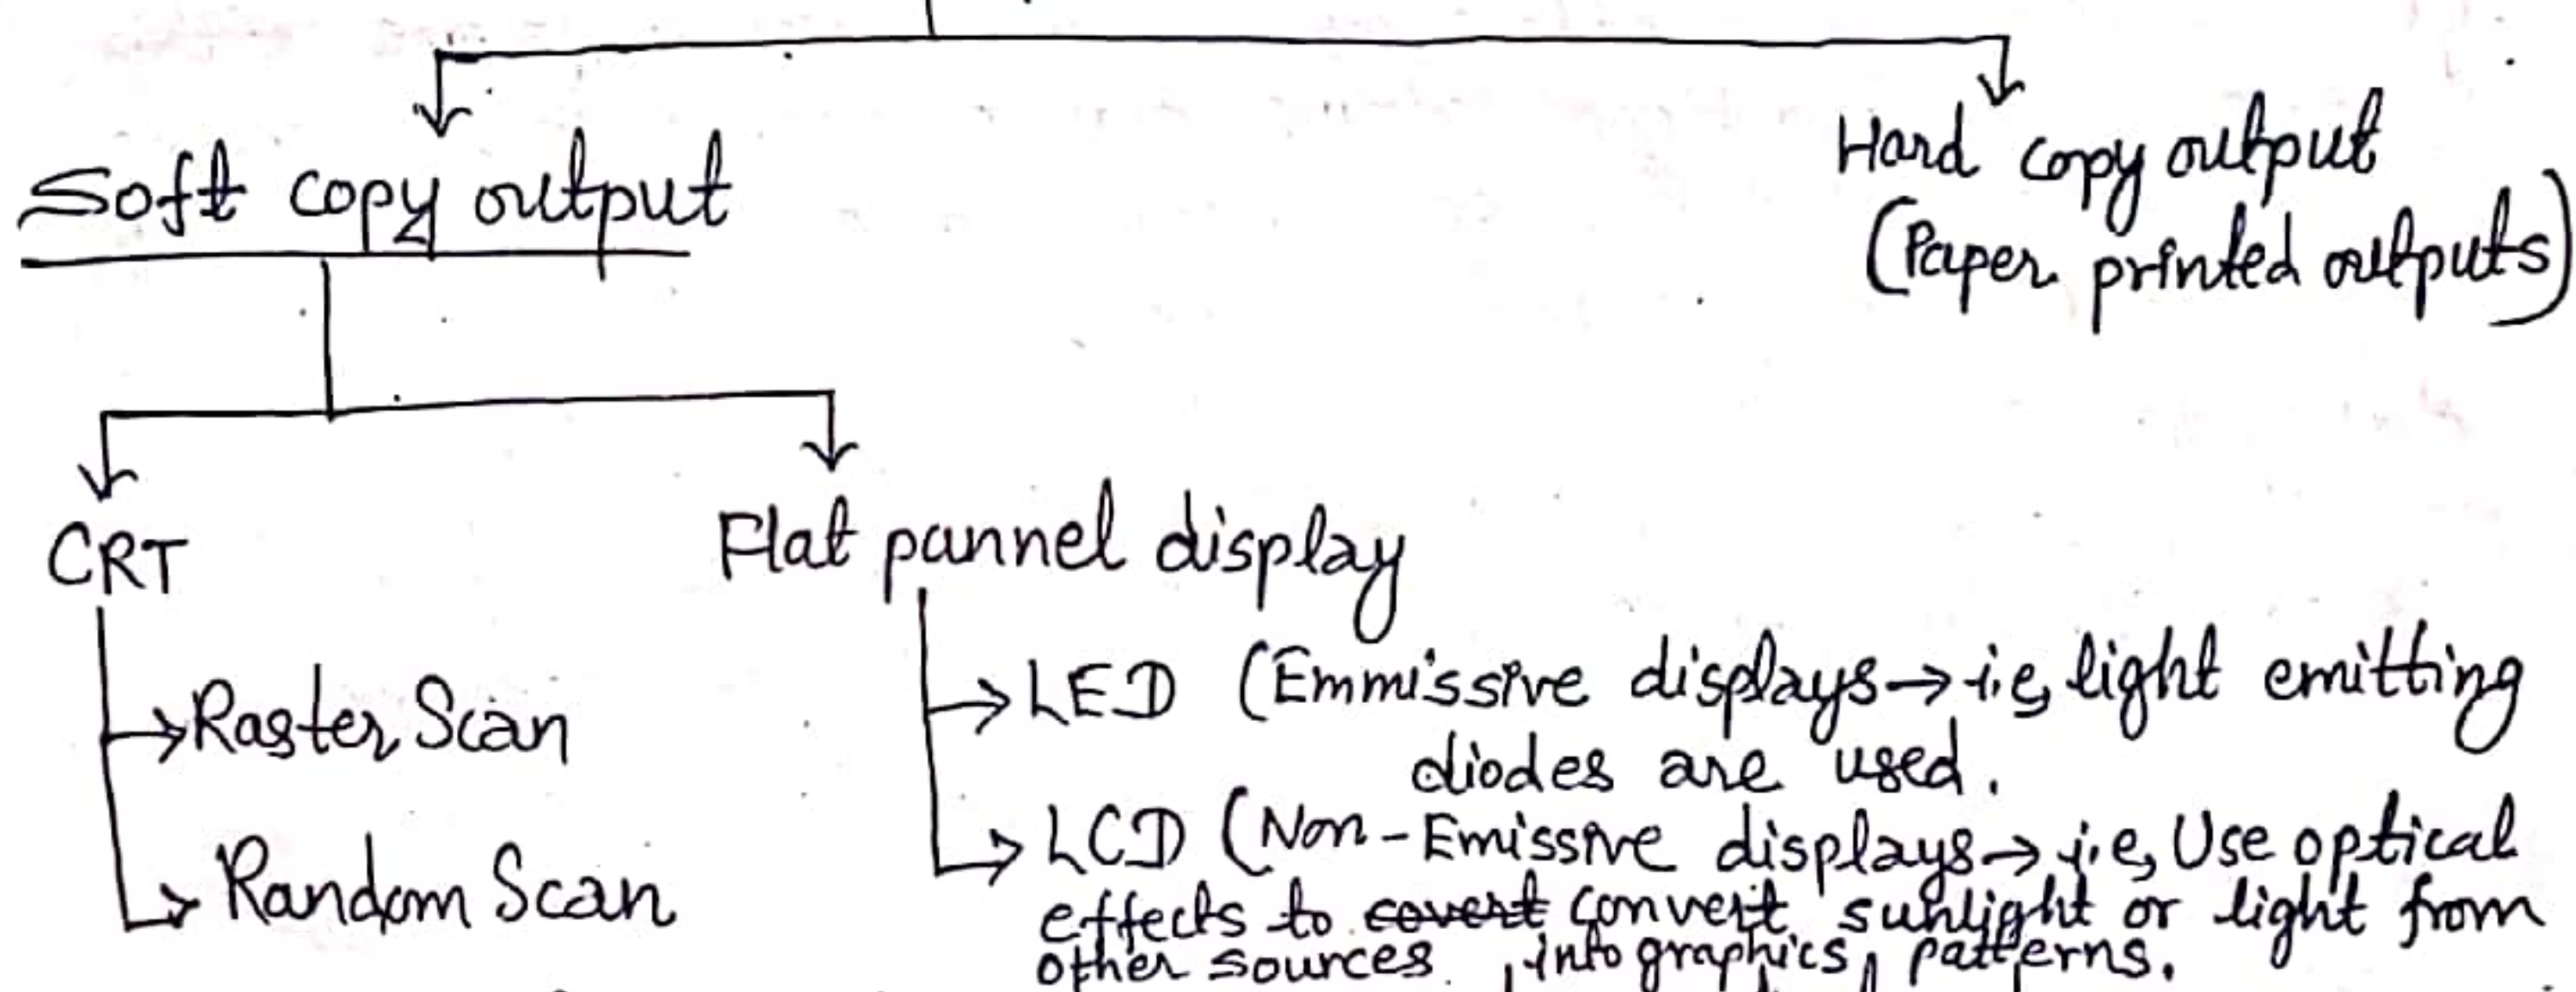 Soft copy output
Hard copy output
(Paper printed outputs)
CRT
Flat pannel display
Raster Scan
Random Scan
LED (Emmissive displays → i.e, light emitting
diodes are used.
LCD (Non-Emissive displays → i.e, Use optical
effects to covert convert sunlight or light from
other sources into graphics patterns.